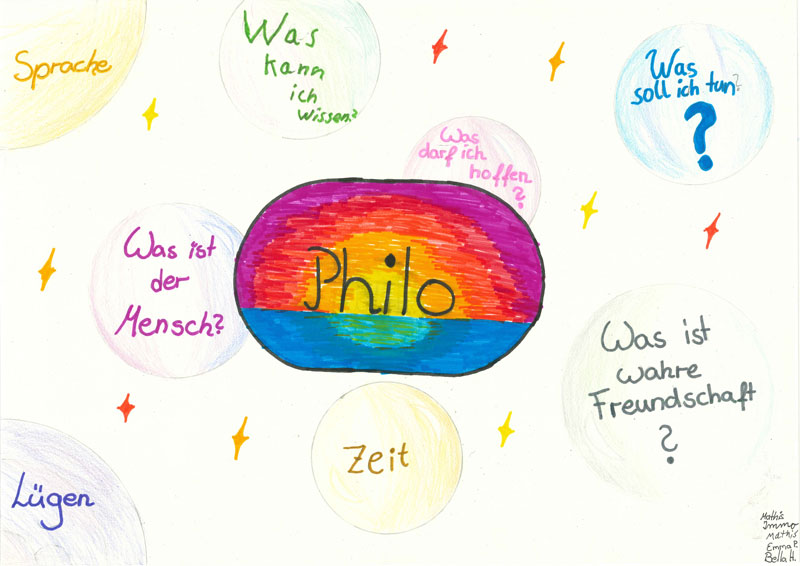 Sprache
Was
kann
ich
wissen?
Was
soll ich tun?
?
Was
darf ich
hoffen
?
Was ist
der
Mensch?
Philo
Was ist
wahre
Freundschaft
?
Zeit
Lügen
Mathis
Immo
Mathis
Emma P.
Bella H.